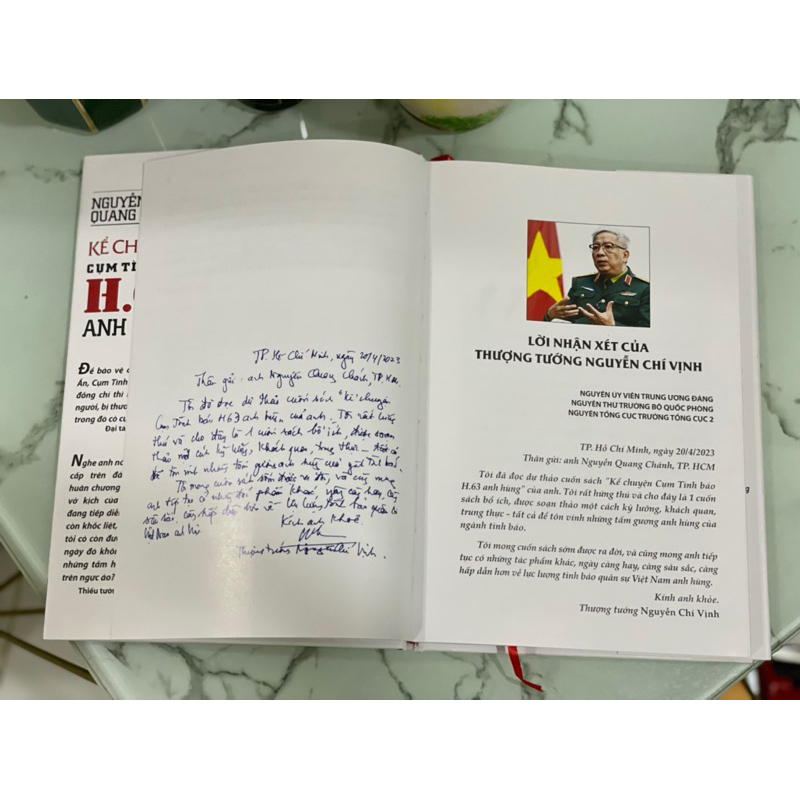 NGUYỄN
QUANG
KỂ CH
CỤM TÌ
H.
ANH
Để bảo vệ
Án, Cụm Tình
đồng chí thì
người, bị thươ
trong đó có
Đại tá
Nghe anh nó
cấp trên đá
huân chương
vở kịch của
đang tiếp diễ
còn khốc liệt,
tôi có còn đư
ngày đó khô
những tấm h
trên ngực áo?
Thiếu tướ
TP. Hồ Chí Minh, ngày 20/4/2023
Thân gửi: anh Nguyễn Quang Chánh, TP. HCM
Tôi đã đọc dự thảo cuốn sách "Kể chuyện
Cụm Tình báo H.63 anh hùng" của anh. Tôi rất hứng
thú và cho đây là 1 cuốn sách bổ ích, được soạn
thảo một cách kỹ lưỡng, khách quan, trung thực - tất cả
để tôn vinh những tấm gương anh hùng của ngành tình báo.
Tôi mong cuốn sách sớm được ra đời, và cũng mong
anh tiếp tục có những tác phẩm khác, ngày càng hay, càng
sâu sắc, càng hấp dẫn hơn về lực lượng tình báo quân sự
Việt Nam anh hùng.
Kính anh khỏe.
Thượng tướng Nguyễn Chí Vịnh.
LỜI NHẬN XÉT CỦA
THƯỢNG TƯỚNG NGUYỄN CHÍ VỊNH
NGUYÊN ỦY VIÊN TRUNG ƯƠNG ĐẢNG
NGUYÊN THỨ TRƯỞNG BỘ QUỐC PHÒNG
NGUYÊN TỔNG CỤC TRƯỞNG TỔNG CỤC 2
TP. Hồ Chí Minh, ngày 20/4/2023
Thân gửi: anh Nguyễn Quang Chánh, TP. HCM
Tôi đã đọc dự thảo cuốn sách "Kể chuyện Cụm Tình báo
H.63 anh hùng" của anh. Tôi rất hứng thú và cho đây là 1 cuốn
sách bổ ích, được soạn thảo một cách kỹ lưỡng, khách quan,
trung thực - tất cả để tôn vinh những tấm gương anh hùng của
ngành tình báo.
Tôi mong cuốn sách sớm được ra đời, và cũng mong anh tiếp
tục có những tác phẩm khác, ngày càng hay, càng sâu sắc, càng
hấp dẫn hơn về lực lượng tình báo quân sự Việt Nam anh hùng.
Kính anh khỏe.
Thượng tướng Nguyễn Chí Vịnh